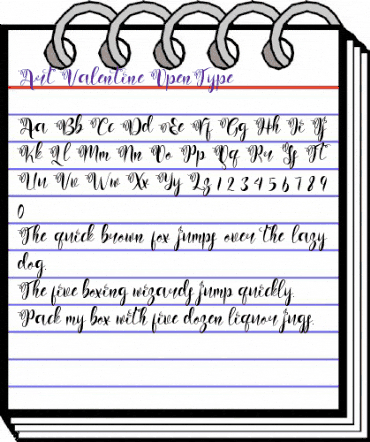 Avit Valentine OpenType
Aa Bb Cc Dd Ee Ff Gg Hh Ii Jj
Kk Ll Mm Nn Oo Pp Qq Rr Ss Tt
Uu Vv Ww Xx Yy Zz 1 2 3 4 5 6 7 8 9
0
The quick brown fox jumps over the lazy
dog.
The five boxing wizards jump quickly.
Pack my box with five dozen liquor jugs.